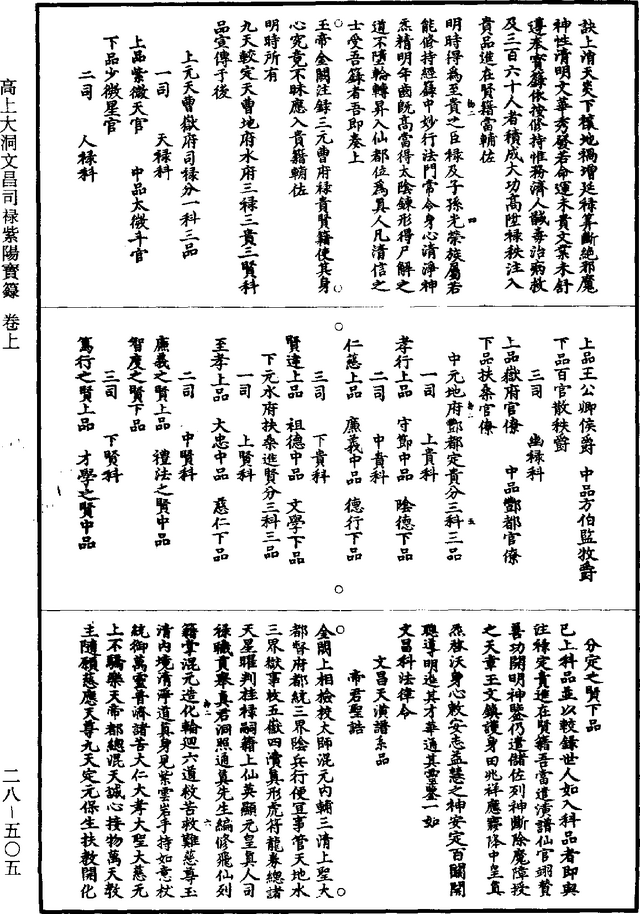 高上大洞文昌司禄紫陽寳籙 卷上
二八—五〇五
訣上清天炎下禳地禍增延祿筭斷絶邪魔
神性清明文華秀發若命運未貴文業未舒
遵奉寳籙依按修持惟務濟人鍼毒治病救
及三百六十人者積成大功高陞祿秩注入
貴品進在賢籍當輔佐
明時得為至貴之臣祿及子孫光榮族屬若
能修持經籙中妙行法門當令身心清淨神
炁精明年國既高當得太陰鍊形得尸解之
道不墮輪轉昇入仙都位為真人凡清信之
士受吾籙者吾即奏上
玉帝金闕注録三元曹府祿貴賢籍使其身
心究竟不昧應入貴籍輔佐
明時所有
九天較定天曹地府水府三祿三貴三賢科
品宣傳于後
上元天曹嶽府司祿分一科三品
一司 天祿科
上品紫微天官 中品太微斗官
下品少微星官
二司 人祿科
上品王公卿侯爵 中品方伯監牧爵
下品百官散秩爵
三司 幽祿科
上品嶽府官僚 中品酆都官僚
下品扶桑官僚
中元地府酆都定貴分三科三品
一司 上貴科
孝行上品 守鄧中品 陰德下品
二司 中貴科
仁慈上品 廉義中品 德行下品
三司 下貴科
賢達上品 祖德中品 文學下品
下元水府扶桑進賢分三科三品
一司 上賢科
至孝上品 大忠中品 慈仁下品
二司 中賢科
廉義之賢上品 禮法之賢中品
智度之賢下品
三司 下賢科
篤行之賢上品 才學之賢中品
分定之賢下品
已上科品並以較録世人如入科品者即與
注祿定貴進在賢籍吾當遣演譜仙官翊贊
善功開明神鑒仍遣儲佐列神斷除魔障授
之天章玉文鎮護身田兆祥應夢降中皇真
炁啓沃身心敷安志益慧之神安定百關開
聰導明進其才華通其靈鑒一如
文昌科法律令
文昌天演譜系品
帝君聖誥
金闕上相檢校太師混元内輔三清上聖大
都督府都統三界陰兵行便宜事管天地水
三界獄事牧五嶽四瀆真形虎符龍券總諸
天星曜判桂祿嗣籍上仙英顯元皇真人司
祿職貢舉真君洞照通真先生編修飛仙列
籍掌混元造化輪迴六道救苦救難慈尊玉
清内境清淨道真身見紫雲岩手持如意杖
統御萬靈普濟諸苦大仁大孝大聖大慈元
上不驕樂天帝都總混天誠心接物萬天教
主隨願慈應天尊九天定元保生扶教開化